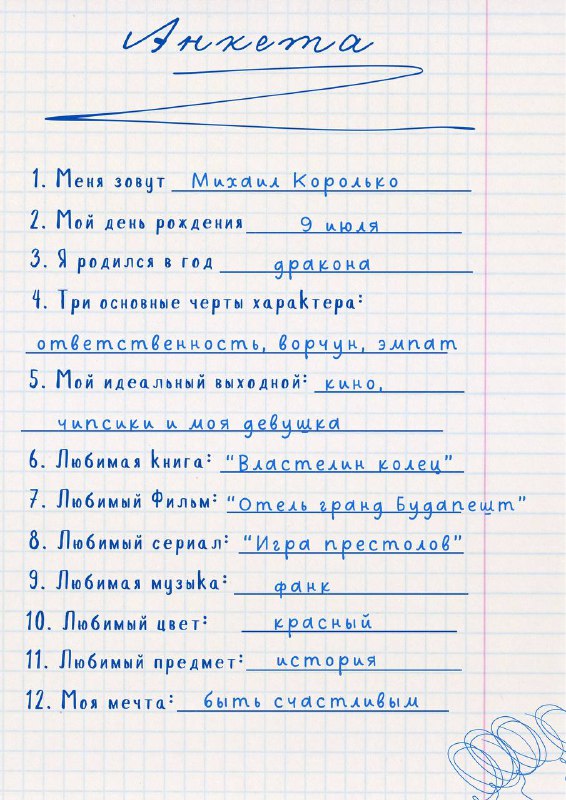 Анкета
1. Меня зовут Михаил Королько
2. Мой день рождения 9 июля
3. Я родился в год дракона
4. Три основные черты характера:
ответственность, ворчун, эмпат
5. Мой идеальный выходной: кино,
чипсики и моя девушка
6. Любимая книга: "Властелин колец"
7. Любимый Фильм: "Отель гранд Будапешт"
8. Любимый сериал: "Игра престолов"
9. Любимая музыка: фанк
10. Любимый цвет: красный
11. Любимый предмет: история
12. Моя мечта: быть счастливым